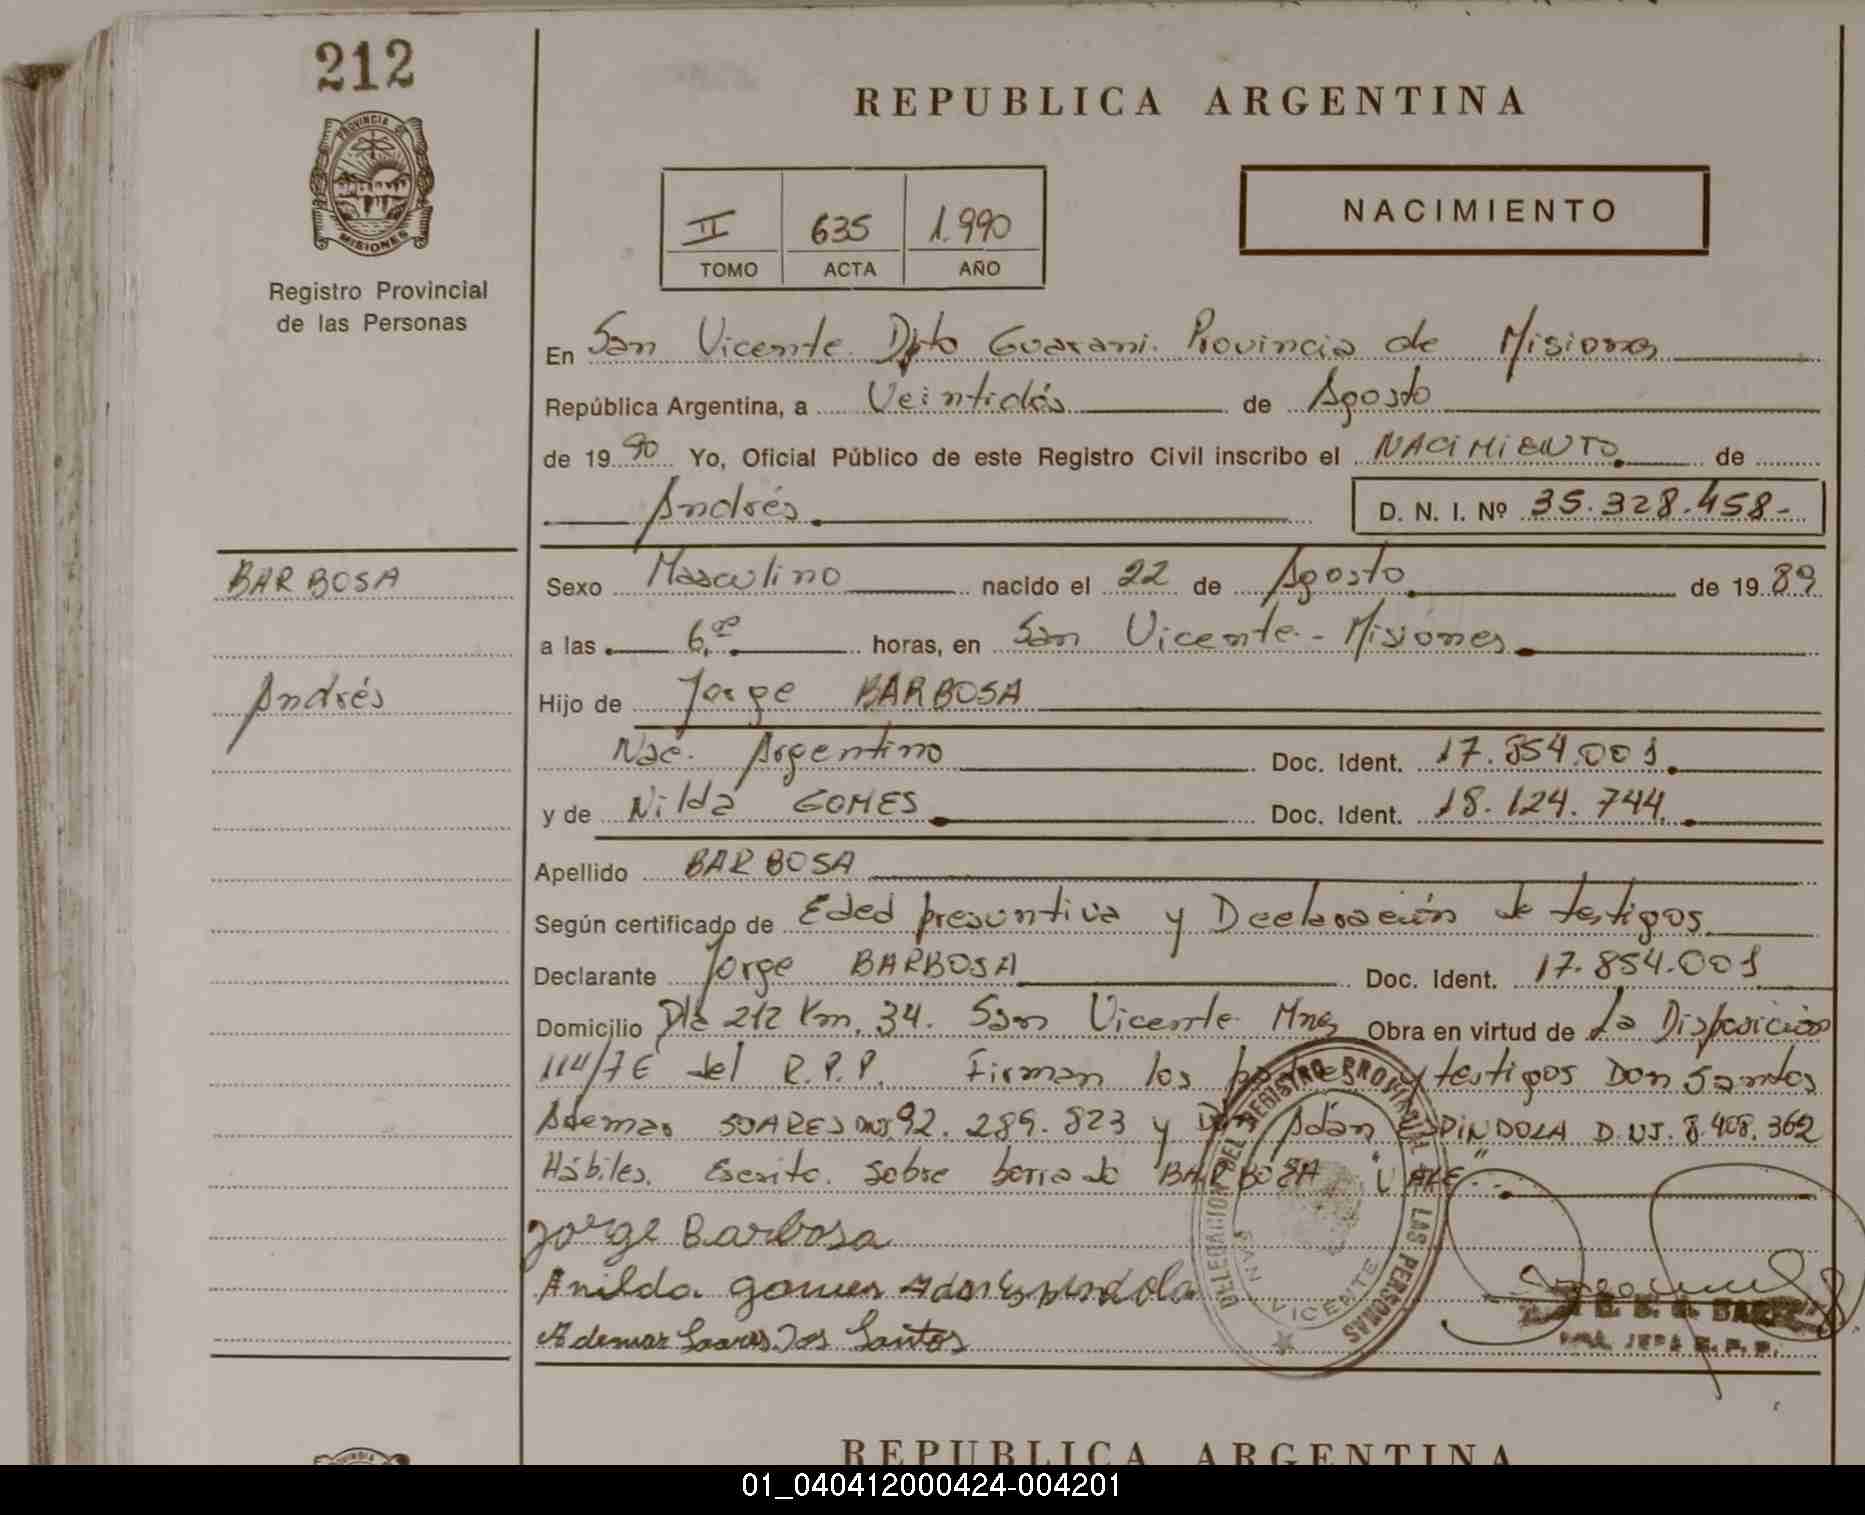 212
PROVINCIA DE
MISIONES
Registro Provincial
de las Personas
REPUBLICA ARGENTINA
II 635 1.990
TOMO ACTA AÑO
NACIMIENTO
En San Vicente Dpto Guarani. Provincia de Misiones
República Argentina, a Veintidós de Agosto
de 19 90 Yo, Oficial Público de este Registro Civil inscribo el NACIMIENTO de
Andrés D. N. I. Nº 35.328.458-
BARBOSA
Andrés
Sexo Masculino nacido el 22 de Agosto de 19 89
a las 6 horas, en San Vicente - Misiones
Hijo de Jorge BARBOSA
Nac. Argentino Doc. Ident. 17.854.001
y de Nilda GOMES Doc. Ident. 18.124.744
Apellido BARBOSA
Según certificado de Edad presuntiva y Declaración de testigos
Declarante Jorge BARBOSA Doc. Ident. 17.854.001
Domicilio 212 Km. 34. San Vicente Mnes Obra en virtud de La Disposición
114/76 del R.P.P. Firman los padres y testigos Don Santos
Ademar SOARES DNI 92.289.823 y Don Adán SPINDOLA D.NI. 8.408.362
Hábiles. Escrito sobre borrado BARBOSA "VALE".
Jorge Barbosa
Anilda gomes Adan Espindola
Ademar Soares Dos Santos
DELEGACION DEL REGISTRO PROVINCIAL DE LAS PERSONAS
SAN VICENTE
REPUBLICA ARGENTINA
01_040412000424-004201